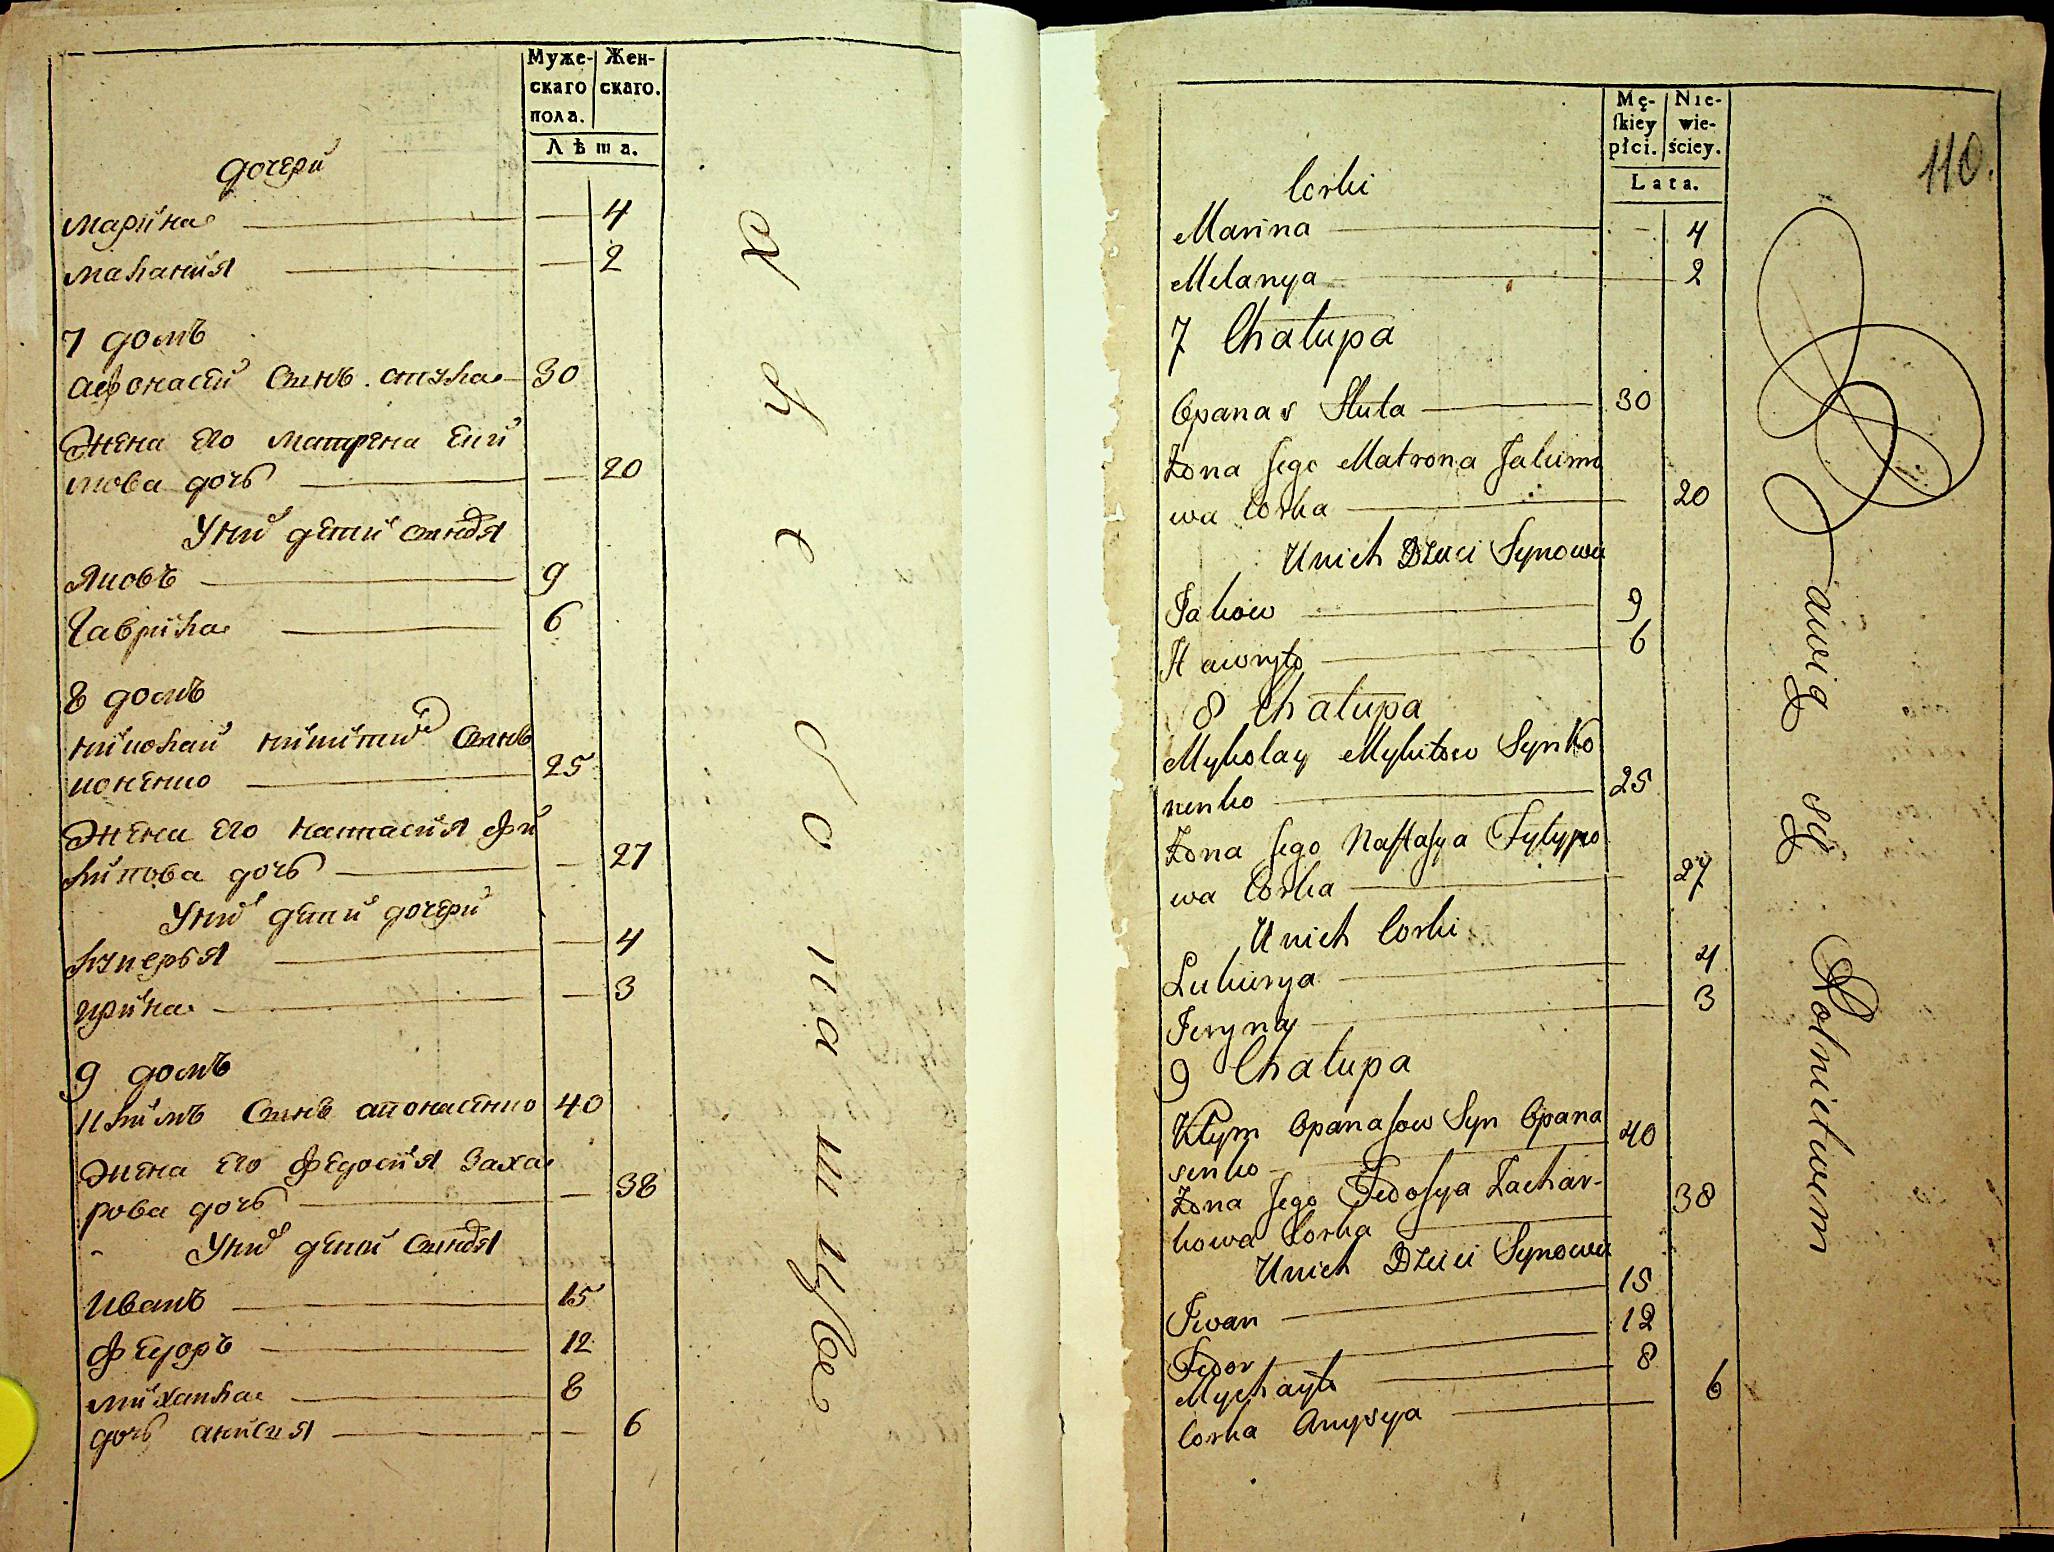 Муже-
скаго
пола.
Жен-
скаго.
Лѣта.
дочери
марина 4
малания 2
7 домъ
афонасий синъ стула 30
жена его матрена еки
мова дочь 20
У них дети синовя
яковъ 9
гаврила 6
8 домъ
николай никитин синъ
коненко 25
жена его настасия фи
липова дочь 27
У них дети дочери
лукерья 4
ирина 3
9 домъ
клим синъ апонасенко 40
жена его федосия заха
рова дочь 38
У них дети синовя
иванъ 15
федоръ 12
михайла 8
дочь анисия 6
Mę-
ſkiey
płci.
Nie-
wie-
ściey.
Lata.
110.
Corki
Marina 4
Melanya 2
7 Chałupa
Opanas Stuła 30
Zona Jego Matrona Jakimo
wa Corka 20
U nich Dzieci Synowie
Jakow 9
Hawryło 6
8 Chałupa
Mykolay Mykitow Syn Ko
nenko 25
Zona Jego Naſtaſya Fylypo
wa Corka 27
U nich Corki
Lukierya 4
Jeryna 3
9 Chałupa
Kłym Opanaſow Syn Opana
senko 40
Zona Jego Fedoſya Zachar-
kowa Corka 38
U nich Dzieci Synowie
Iwan 15
Fedor 12
Mychayło 8
Corka Anysya 6
bawią się Rolnictwem